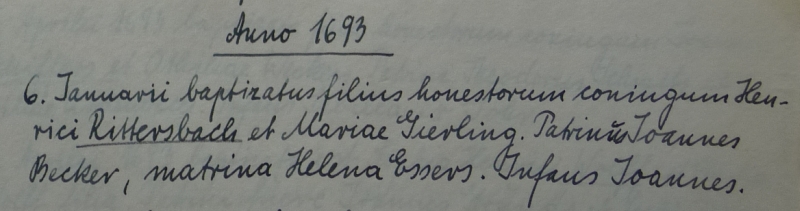 Anno 1693
6. Ianuarii baptizatus filius honestorum coniugum Hen-
rici Rittersbach et Mariae Gierling. Patrinus Ioannes
Becker, matrina Helena Essers. Infans Ioannes.